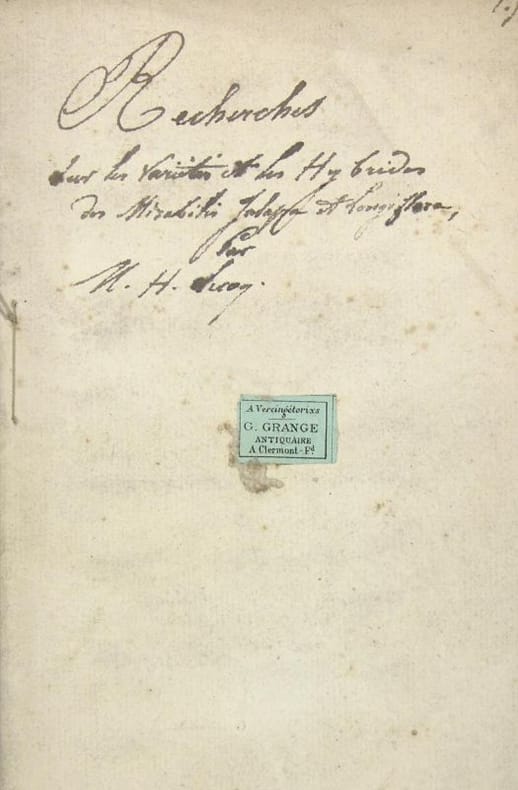 Recherches
Sur les Variétés et les Hybrides
des Mirabilis Jalappa et Longiflora,
Par
M. H. Lecoq.
A Vercingétorixs
G. GRANGE
ANTIQUAIRE
A Clermont-Fd